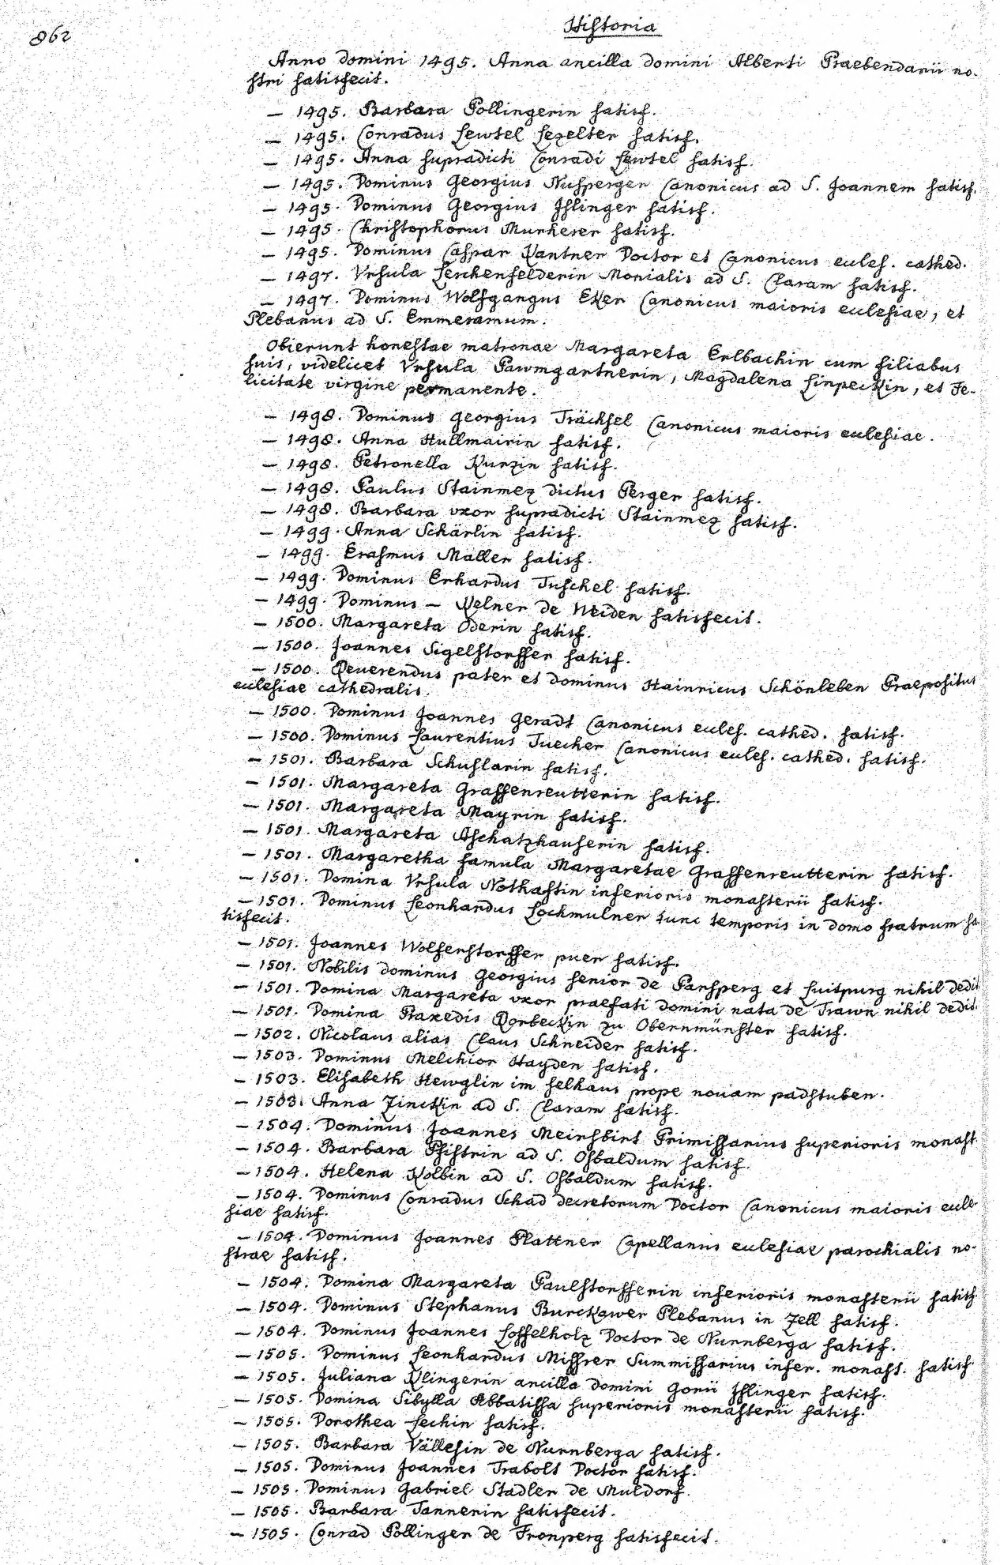 862
Historia
Anno domini 1495. Anna ancilla domini Alberti Praebendarii no-
stri satisfecit.
— 1495. Barbara Pollingerin satisf.
— 1495. Conradus Lewtel Lezelter satisf.
— 1495. Anna supradicti Conradi Lewtel satisf.
— 1495. Dominus Georgius Nusperger Canonicus ad S. Joannem satisf.
— 1495. Dominus Georgius Jslinger satisf.
— 1495. Christophorus Murherer satisf.
— 1495. Dominus Caspar Kantner Doctor et Canonicus eccles. cathed.
— 1497. Vrsula Lerchenfelderin Monialis ad S. Claram satisf.
— 1497. Dominus Wolfgangus Eker Canonicus maioris ecclesiae, et
Plebanus ad S. Emmeramum.
Obierunt honestae matronae Margareta Erlbachin cum filiabus
suis, videlicet Vrsula Pawmgartnerin, Magdalena Linpeckin, et Fe-
licitate virgine permanente.
— 1498. Dominus Georgius Träcksel Canonicus maioris ecclesiae.
— 1498. Anna Hullmairin satisf.
— 1498. Petronella Kunzin satisf.
— 1498. Paulus Stainmez dictus Perger satisf.
— 1498. Barbara vxor supradicti Stainmez satisf.
— 1499. Anna Schärlin satisf.
— 1499. Erasmus Maller satisf.
— 1499. Dominus Erhardus Tuschel satisf.
— 1499. Dominus — Kelner de Weiden satisfecit.
— 1500. Margareta Öderin satisf.
— 1500. Joannes Sigelstorffer satisf.
— 1500. Reuerendus pater et dominus Hainricus Schönleben Praepositus
ecclesiae cathedralis.
— 1500. Dominus Joannes Geradt Canonicus eccles. cathed. satisf.
— 1500. Dominus Laurentius Tuecher Canonicus eccles. cathed. satisf.
— 1501. Barbara Schuslarin satisf.
— 1501. Margareta Graffenreutterin satisf.
— 1501. Margareta Mayrin satisf.
— 1501. Margareta Aschatzhauserin satisf.
— 1501. Margaretha famula Margaretae Graffenreutterin satisf.
— 1501. Domina Vrsula Nothaftin inferioris monasterii satisf.
— 1501. Dominus Leonhardus Lochmulner tunc temporis in domo fratrum sa-
tisfecit.
— 1501. Joannes Wolferstorffer puer satisf.
— 1501. Nobilis dominus Georgius senior de Parsperg et Luitpurg nihil dedit
— 1501. Domina Margareta vxor praefati domini nata de Trawn nihil dedit.
— 1501. Domina Praxedis Rorbeckin zu Obernmünster satisf.
— 1502. Nicolaus alias Claus Schneider satisf.
— 1503. Dominus Melchior Hayden satisf.
— 1503. Elisabeth Hewglin im selhaus prope nouam padstuben.
— 1503. Anna Zinckin ad S. Claram satisf.
— 1504. Dominus Joannes Meirsbirt Primissarius superioris monast.
— 1504. Barbara Pfistrin ad S. Osbaldum satisf.
— 1504. Helena Kolbin ad S. Osbaldum satisf.
— 1504. Dominus Conradus Schad decretorum Doctor Canonicus maioris eccle-
siae satisf.
— 1504. Dominus Joannes Plattner Capellanus ecclesiae parochialis no-
strae satisf.
— 1504. Domina Margareta Paulstorfferin inferioris monasterii satisf.
— 1504. Dominus Stephanus Burckawer Plebanus in Zell satisf.
— 1504. Dominus Joannes Loffelholz Doctor de Nurnberga satisf.
— 1505. Dominus Leonhardus Missrer Summissarius infer. monast. satisf.
— 1505. Juliana Klingerin ancilla domini Gorii Jslinger satisf.
— 1505. Domina Sibylla Abbatissa superioris monasterii satisf.
— 1505. Dorothea Lechin satisf.
— 1505. Barbara Vällesin de Nurnberga satisf.
— 1505. Dominus Joannes Trabolt Doctor satisf.
— 1505. Dominus Gabriel Stadler de Muldorf.
— 1505. Barbara Tannerin satisfecit.
— 1505. Conrad Pollinger de Fronperg satisfecit.